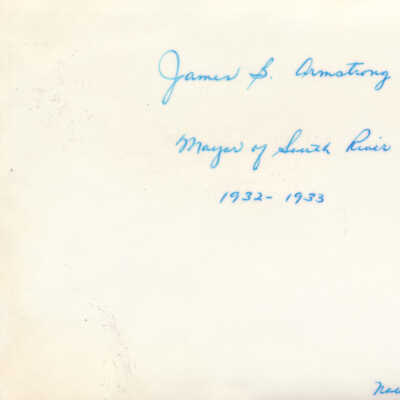 James S. Armstrong
Mayor of South River
1932-1933